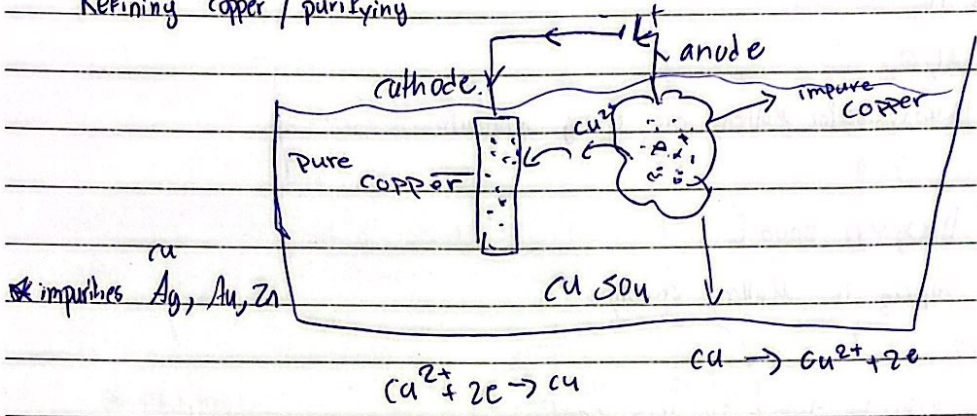 Refining copper / purifying
+
anode
cathode.
impure
copper
Cu²⁺
pure
copper
cu
* impurities Ag, Au, Zn
Cu SO4
Cu → Cu²⁺ + 2e
Cu²⁺ + 2e → Cu